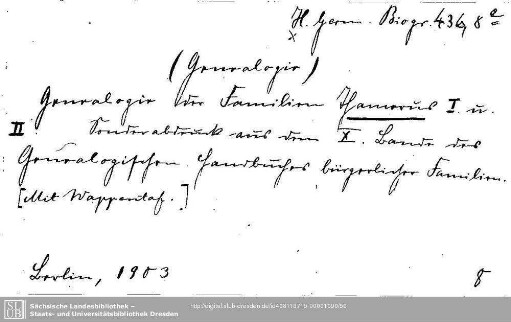 H. Germ. Biogr. 436, 8
(Genealogie)
Genealogie der Familien Thamerus I. u.
II Sonderabdruck aus dem X. Bande des
Genealogischen Handbuches bürgerlicher Familien.
[Mit Wappentaf.]
Berlin, 1903 8
Sächsische Landesbibliothek –
Staats- und Universitätsbibliothek Dresden